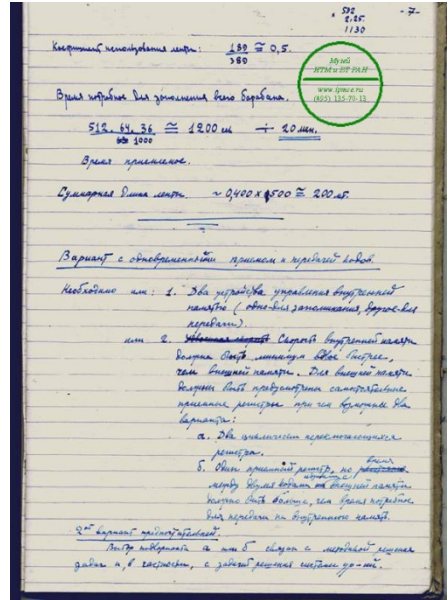 - 7 -
× 502
2.25.
1130
Коэфициент использования ленты: 189/380 ≅ 0,5.
Музей
ИТМ и ВТ РАН
www.ipmce.ru
(495) 135-70-13
Время потребное для заполнения всего барабана.
512. 64. 36 / 1000 ≅ 1200 сек ÷ 20 мин.
Время приемлемое.
Суммарная длина ленты. ~ 0,400 x 500 ≅ 200 м.
Вариант с одновременным приемом и передачей кодов.
Необходимо или: 1. Два устройства управления внутренней
памятью (одно для запоминания, другое для
передачи).
или 2. Скорость внутренней памяти
должна быть минимум вдвое быстрее,
чем внешней памяти. Для внешней памяти
должны быть предусмотрены самостоятельные
приемные регистры при чем возможны два
варианта:
а. Два циклически переключающихся
регистра.
б. Один приемный регистр, но время
между двумя кодами внешней памяти
должно быть больше, чем время потребное
для передачи на внутреннюю память.
2ой вариант предпочтительней.
Выбор подварианта а или б связан с методикой решения
задач и, в частности, с задачей решения системы ур-ний.